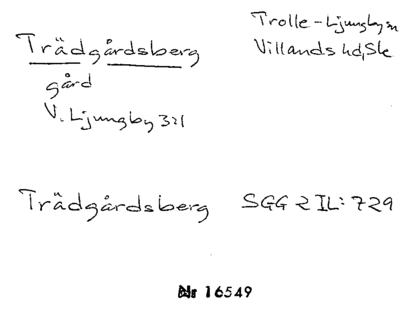 Trädgårdsberg
gård
V. Ljungby 3:1
Trolle-Ljungby sn
Villands hd, Sk
Trädgårdsberg SGG 2 IL: 729
Nr 16549